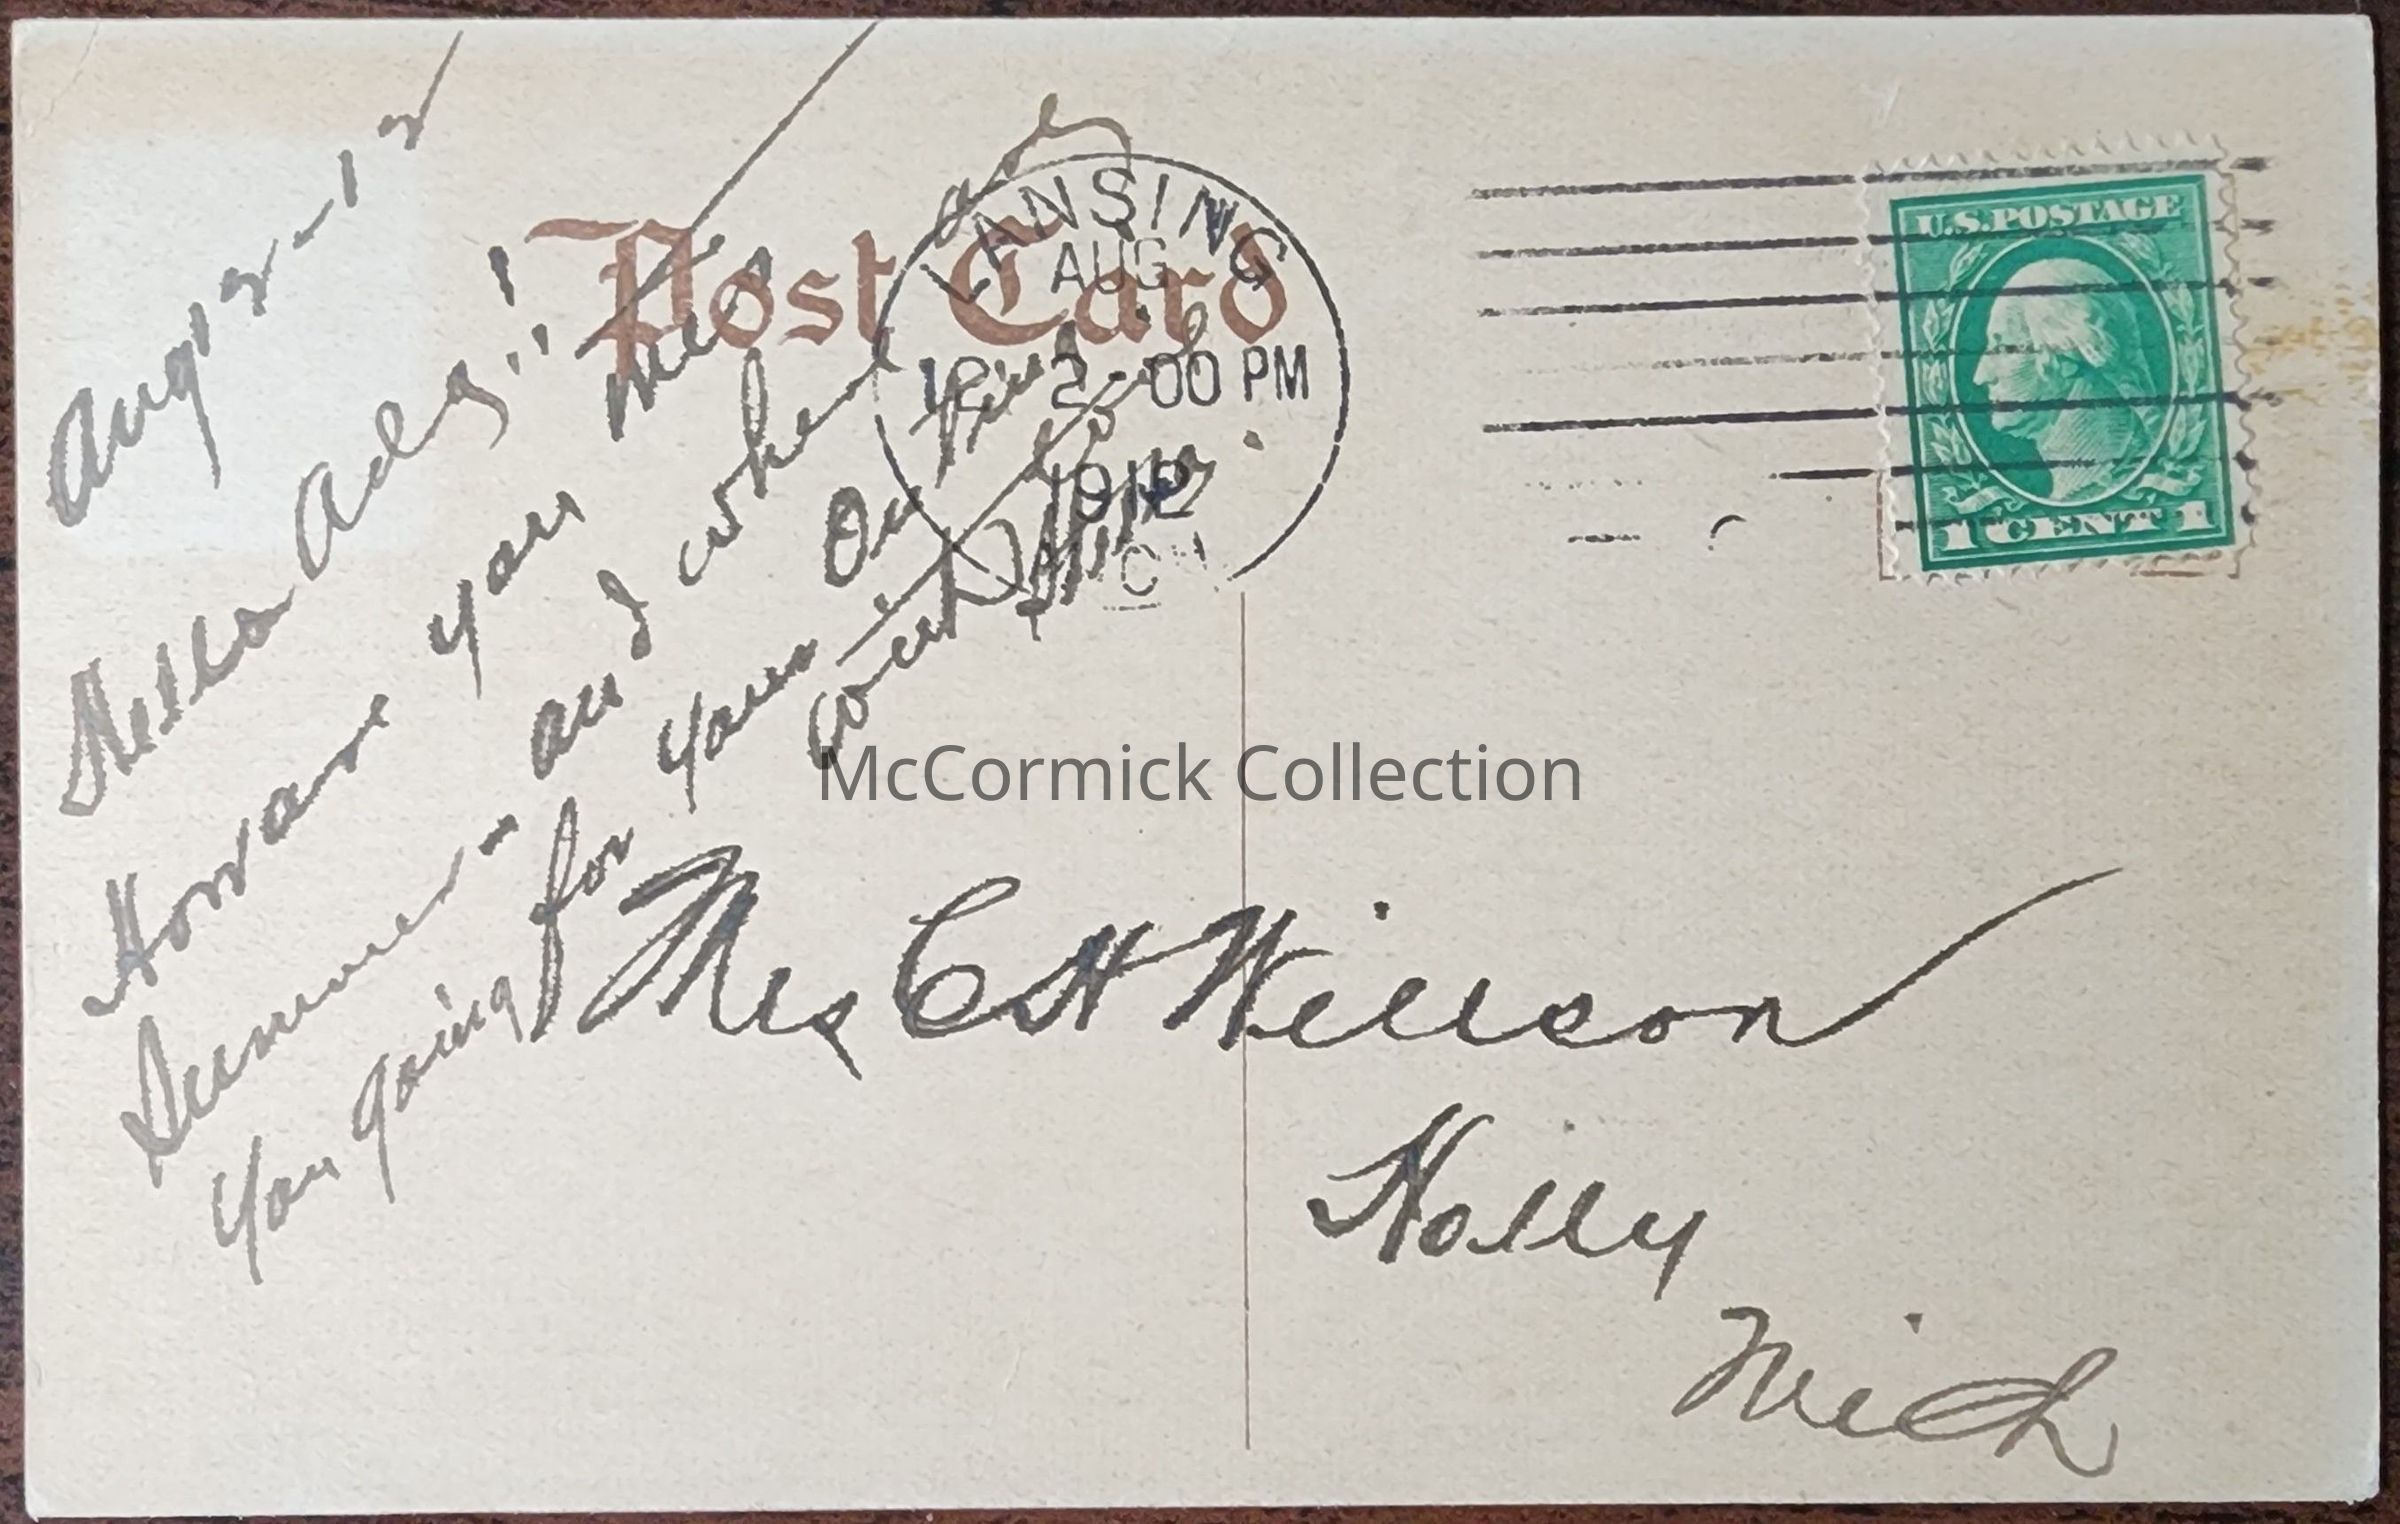 Aug' 2-12
Hello Ady!!
How are you this
Summer - and where are
you going for your
Mrs C H Willson
Holly
Mich
Post Card
LANSING
AUG
12 2-00 PM
1912
U.S. POSTAGE
1 CENT 1
McCormick Collection